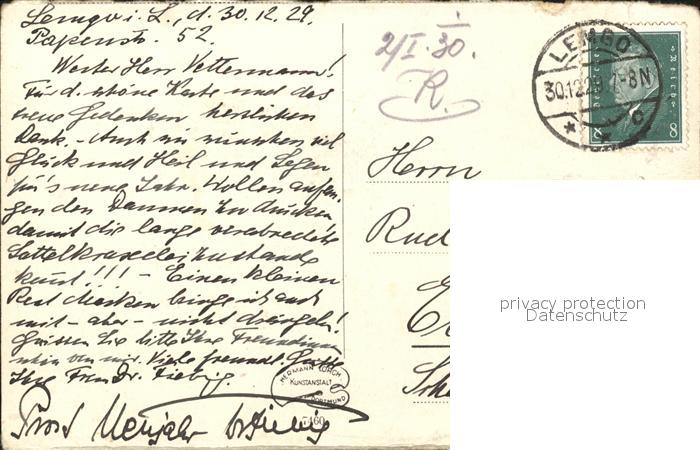 Lemgo i. L., d. 30.12.29.
Papenstr. 52.
Werter Herr Vettermann!
Für d. schöne Karte und das
treue Gedenken herzlichen
Dank. - Auch wir wünschen viel
Glück und Heil und Segen
für's neue Jahr. Wollen anfan-
gen den Daumen zu drücken
damit die lange verabredete
Sattelkraxelei zustande
kommt!!! - Einen kleinen
Rest bringe ich auch
mit - aber - nicht
Grüssen Sie bitte Ihre Freundinnen
von mir. Viele freundl. Grüße
Ihre Frau Dr. Fiebig.
Prost Neujahr
2/I. 30.
R.
LEMGO
30.12.29. 7-8N
c
8
8
Herrn
Rud
HERMANN LORCH
KUNSTANSTALT
DORTMUND
7460
privacy protection
Datenschutz